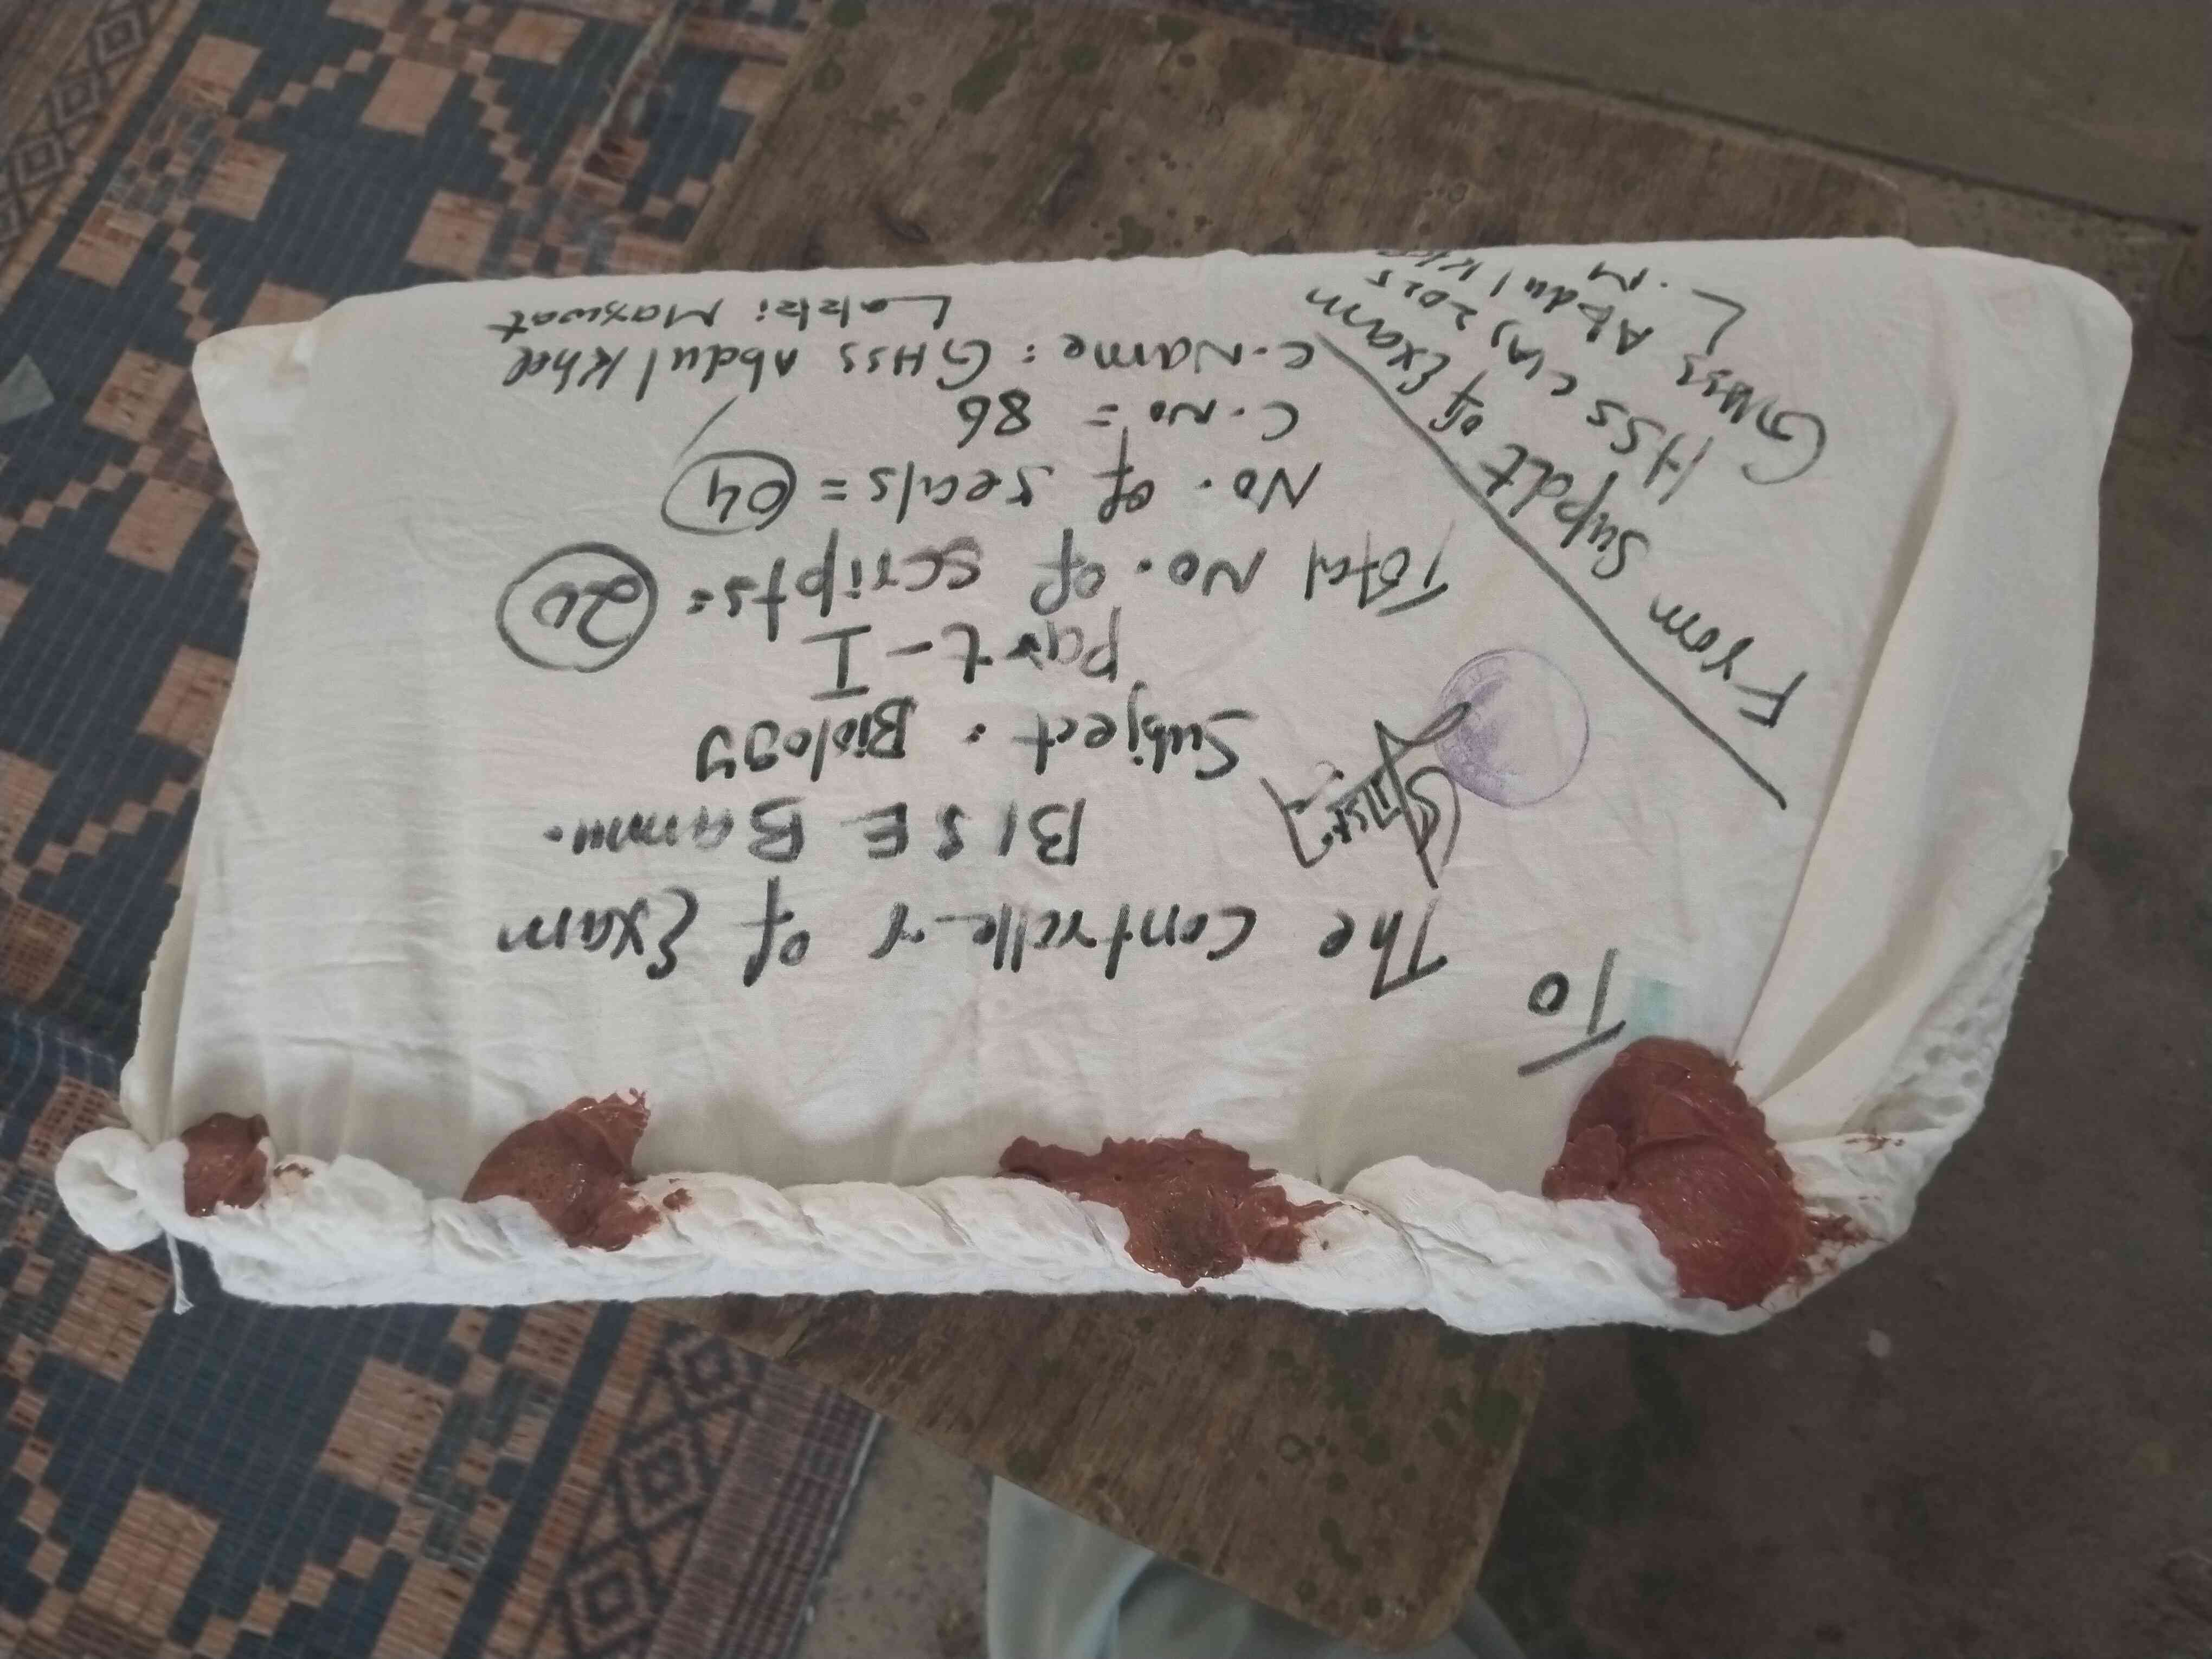 To
The Controller of Exam
BISE Bannu.
Subject. Biology
Part-I
Total No. of scripts= 20
No. of seals= 04
C.No = 86
C.Name: GHSS Abdul Khel
Lakki Marwat
From Supdt of Exam
HSS c(A) 2025
GHSS Abdul Khe
L.M